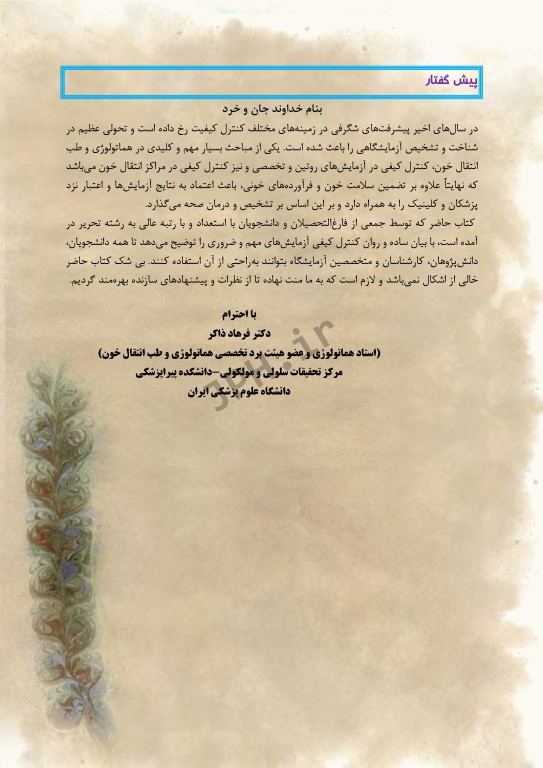 پیش گفتار
بنام خداوند جان و خرد
در سال‌های اخیر پیشرفت‌های شگرفی در زمینه‌های مختلف کنترل کیفیت رخ داده است و تحولی عظیم در
شناخت و تشخیص آزمایشگاهی را باعث شده است. یکی از مباحث بسیار مهم و کلیدی در هماتولوژی و طب
انتقال خون، کنترل کیفی در آزمایش‌های روتین و تخصصی و نیز کنترل کیفی در مراکز انتقال خون می‌باشد
که نهایتاً علاوه بر تضمین سلامت خون و فرآورده‌های خونی، باعث اعتماد به نتایج آزمایش‌ها و اعتبار نزد
پزشکان و کلینیک را به همراه دارد و بر این اساس بر تشخیص و درمان صحه می‌گذارد.
کتاب حاضر که توسط جمعی از فارغ‌التحصیلان و دانشجویان با استعداد و با رتبه عالی به رشته تحریر در
آمده است، با بیان ساده و روان کنترل کیفی آزمایش‌های مهم و ضروری را توضیح می‌دهد تا همه دانشجویان،
دانش‌پژوهان، کارشناسان و متخصصین آزمایشگاه بتوانند به‌راحتی از آن استفاده کنند. بی شک کتاب حاضر
خالی از اشکال نمی‌باشد و لازم است که به ما منت نهاده تا از نظرات و پیشنهادهای سازنده بهره‌مند گردیم.
با احترام
دکتر فرهاد ذاکر
(استاد هماتولوژی و عضو هیئت برد تخصصی هماتولوژی و طب انتقال خون)
مرکز تحقیقات سلولی و مولکولی-دانشکده پیراپزشکی
دانشگاه علوم پزشکی ایران
JPH.ir